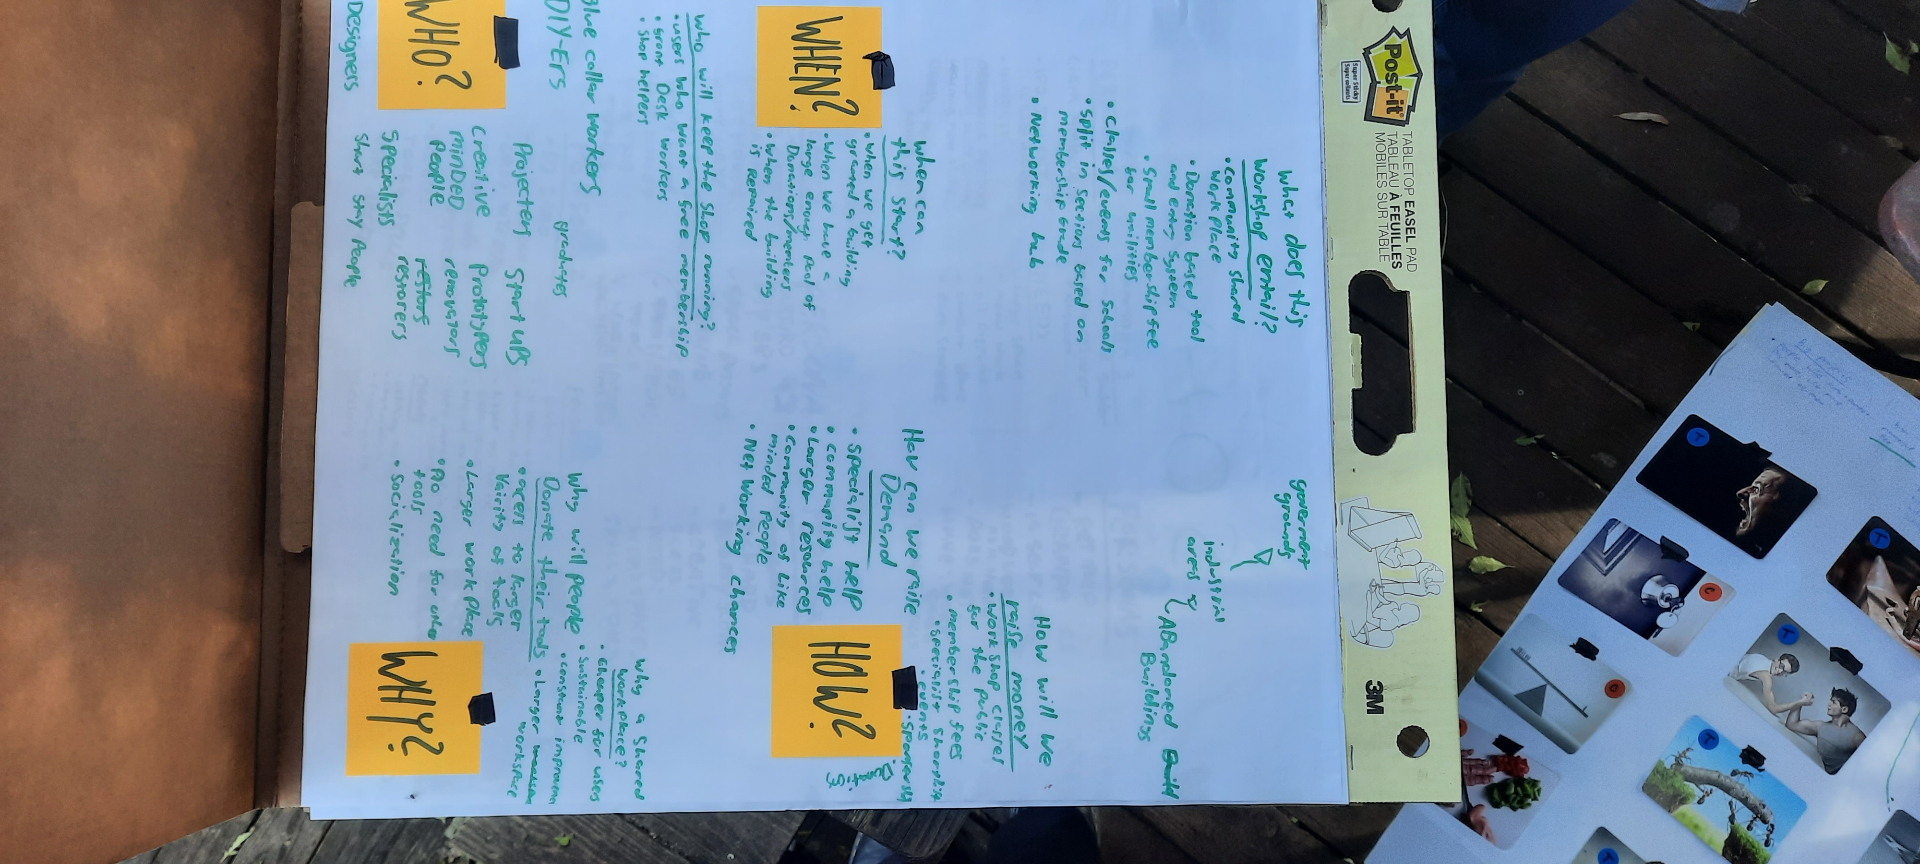 Post-it
Super Sticky
Super collants
TABLETOP EASEL PAD
TABLEAU À FEUILLES
MOBILES SUR TABLE
3M
What does this
workshop entail?
• community shared
workplace
• Donation based tool
and entry system
• Small membership fee
for utilities
• classes/events for schools
• split in sections based on
membership grade
• Networking hub
government
grounds
industrial
areas
ABandoned Build
Buildings
How will we
raise money
• workshop classes
for the public
• membership fees
• specialist sharing
• events
• sponsorship
WHEN?
When can
this start?
• when we get
granted a building
• when we have a
large enough pool of
Donations/members
• when the building
is repaired
HOW?
How can we raise
Demand
• specialist help
• community help
• Larger resources
• community of like
minded people
• Networking chances
who will keep the shop running?
• users who want a free membership
• front Desk workers
• shop helpers
WHO?
Blue collar workers
DIY-Ers
Designers
graduates
Projecters
Start ups
Creative
minded
people
Prototypers
renovators
restors
restorers
Specialists
Short stay people
WHY?
Why will people
Donate their tools
• acces to larger
Vairity of tools
• Larger workplace
• No need for other
tools
• Socialization
Why a shared
workplace?
• cheaper for users
• Sustainable
• constant improvmen
• Larger
workspace